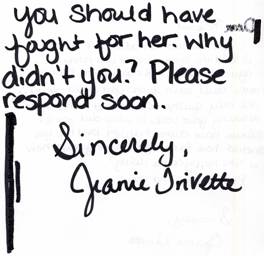 you should have
fought for her. Why
didn't you? Please
respond soon.
Sincerely,
Jeanie Trivette